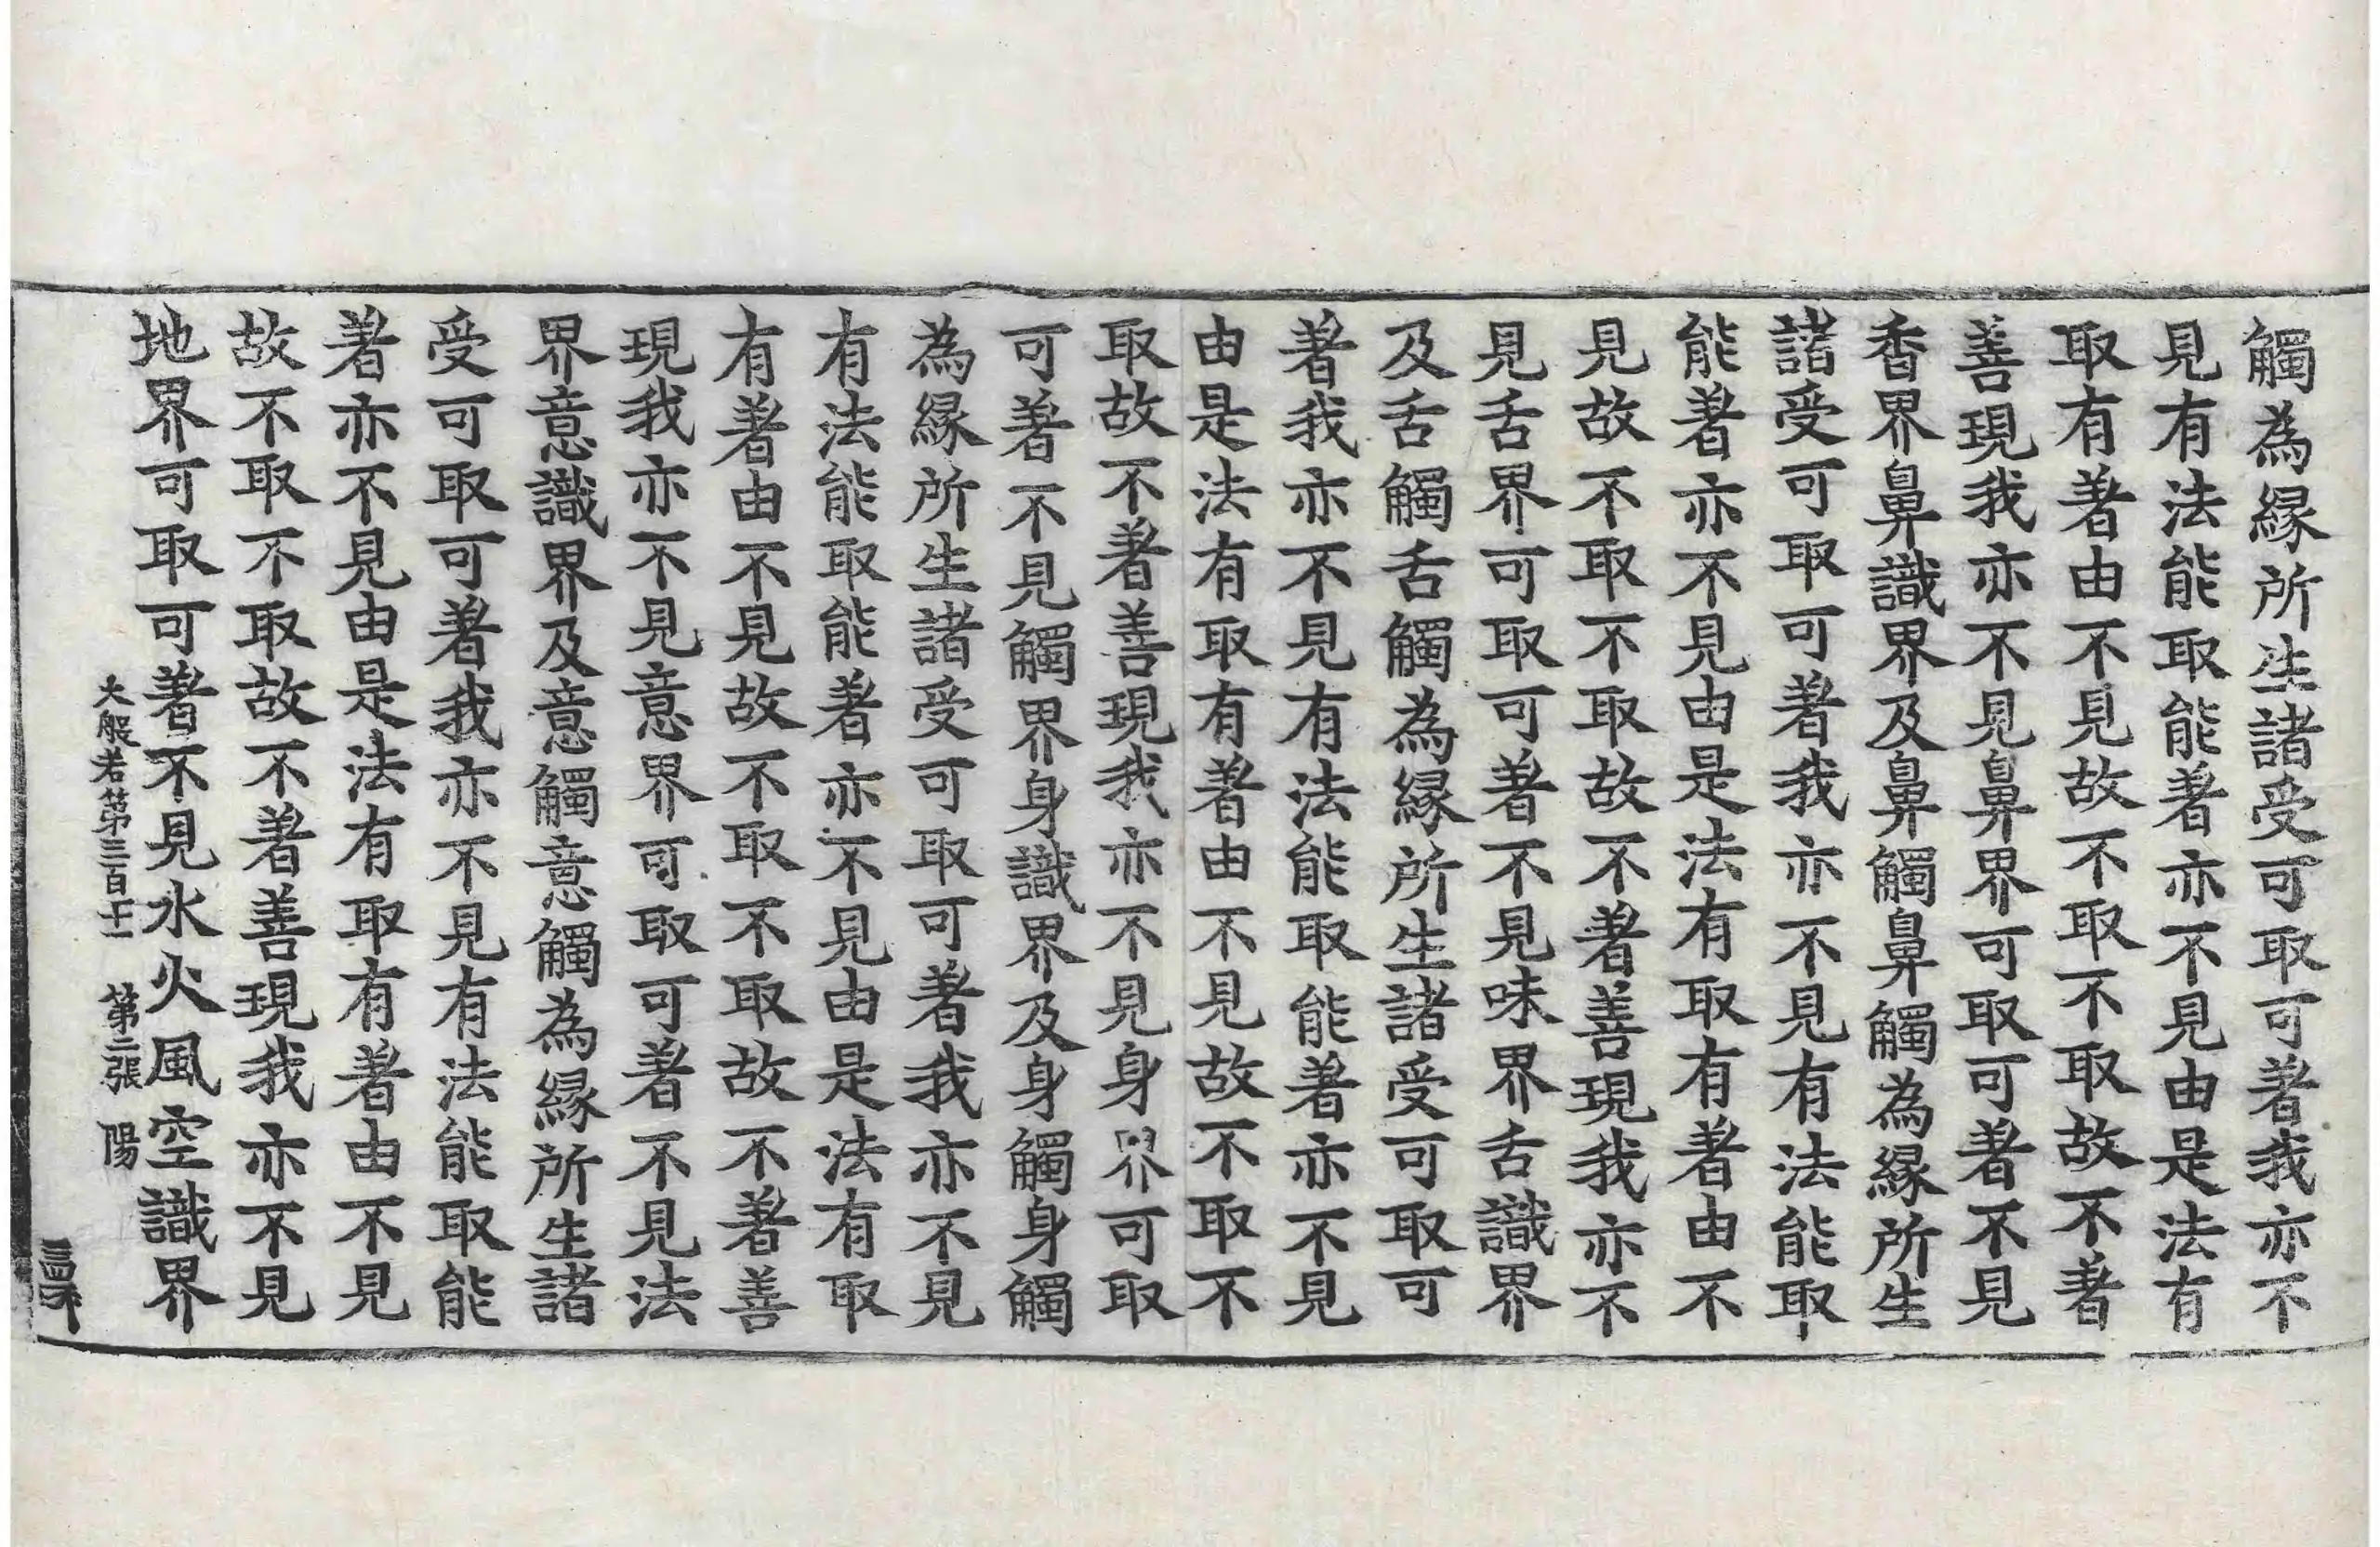 觸為緣所生諸受可取可著我亦不
見有法能取能著亦不見由是法有
取有著由不見故不取不取故不著
善現我亦不見鼻界可取可著不見
香界鼻識界及鼻觸鼻觸為緣所生
諸受可取可著我亦不見有法能取
能著亦不見由是法有取有著由不
見故不取不取故不著善現我亦不
見舌界可取可著不見味界舌識界
及舌觸舌觸為緣所生諸受可取可
著我亦不見有法能取能著亦不見
由是法有取有著由不見故不取不
取故不著善現我亦不見身界可取
可著不見觸界身識界及身觸身觸
為緣所生諸受可取可著我亦不見
有法能取能著亦不見由是法有取
有著由不見故不取不取故不著善
現我亦不見意界可取可著不見法
界意識界及意觸意觸為緣所生諸
受可取可著我亦不見有法能取能
著亦不見由是法有取有著由不見
故不取不取故不著善現我亦不見
地界可取可著不見水火風空識界
大般若第三百十一 第二張 陽